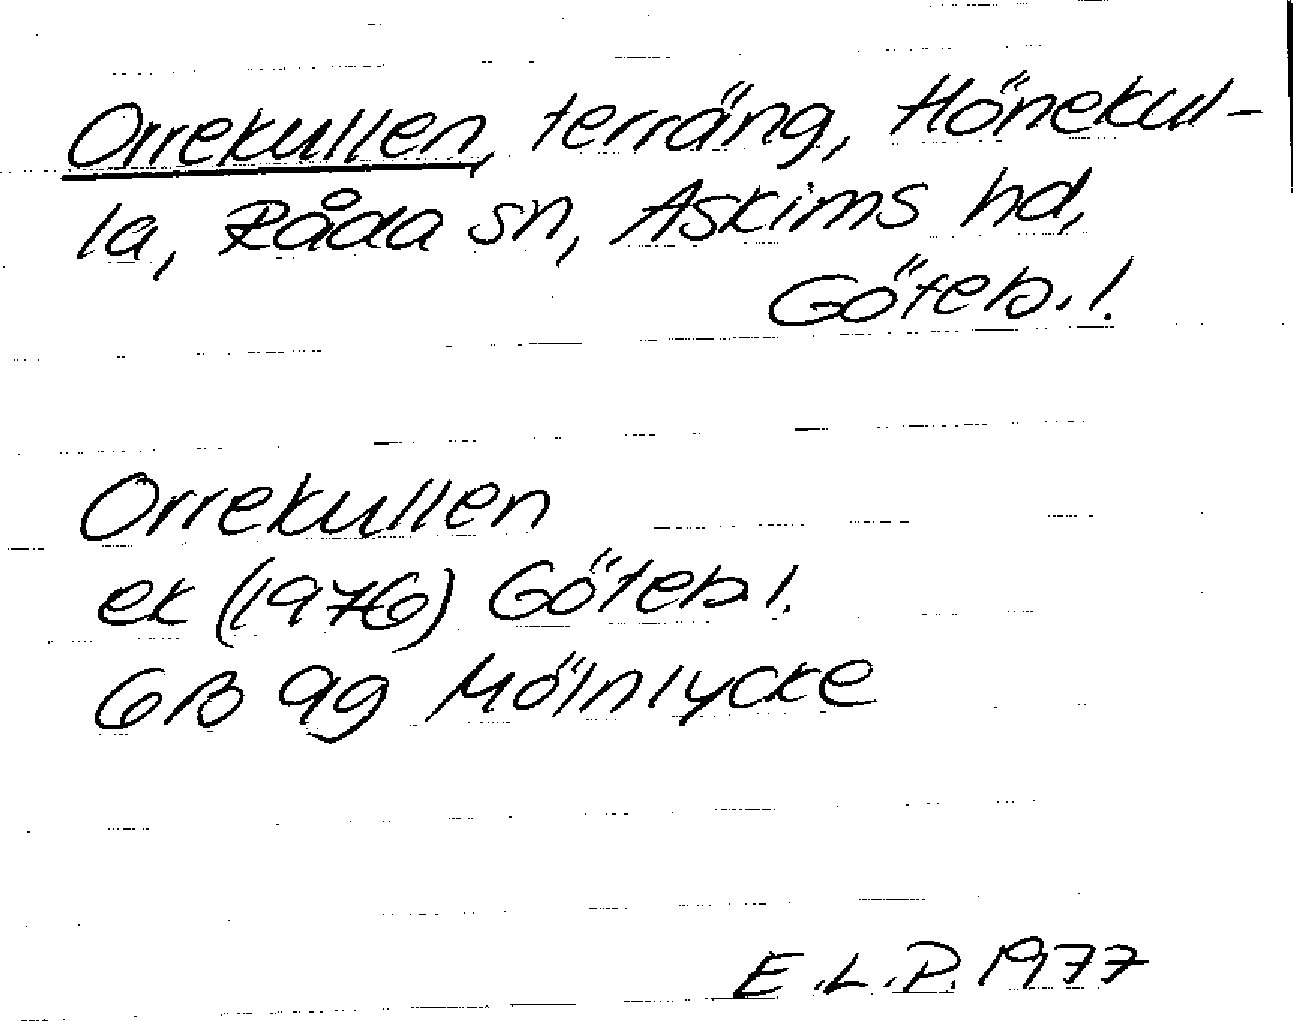 Orrekullen, terräng, Hönekul-
la, Råda sn, Askims hd,
Göteb. l.
Orrekullen
ek (1976) Göteb l.
GB 9g Mölnlycke
E.L.P. 1977